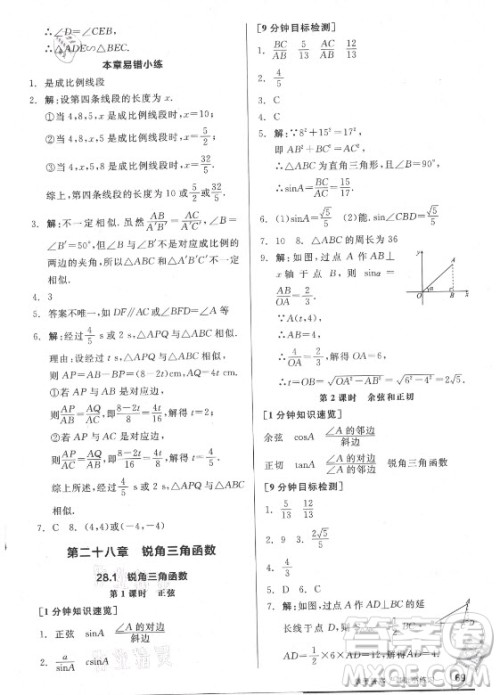 ∴∠D=∠CEB,
∴△ADE∽△BEC.
本章易错小练
1. 是成比例线段
2. 解:设第四条线段的长度为 x.
①当 4,8,5,x 是成比例线段时,x=10;
②当 4,5,8,x 是成比例线段时,x=5/2;
③当 5,4,8,x 是成比例线段时,x=32/5.
综上,第四条线段的长度为 10 或 5/2 或 32/5.
3. 解:不一定相似. 虽然 AB/A′B′=AC/A′C′,∠B=
∠B′=50°,但∠B 与∠B′不是对应成比例的
两边的夹角,所以△ABC 与△A′B′C′不一定
相似.
4. 3
5. 答案不唯一,如 DF∥AC 或∠BFD=∠A 等
6. 解:经过 4/5 s 或 2 s,△APQ 与△ABC 相似.
理由:设经过 t s,△APQ 与△ABC 相似,则
AP=AB-BP=(8-2t) cm,AQ=t cm.
①若 AP 与 AB 是对应边,
则 AP/AB=AQ/AC,即 (8-2t)/8=t/4,解得 t=2;
②若 AP 与 AC 是对应边,
则 AP/AC=AQ/AB,即 (8-2t)/4=t/8,解得 t=
综上所述,经过 4/5 s 或 2 s,△APQ 与△ABC
相似.
7. C 8. (4,4)或(-4,-4)
第二十八章 锐角三角函数
28.1 锐角三角函数
第 1 课时 正弦
[1 分钟知识速览]
1. 正弦 sinA ∠A的对边/斜边
2. a/sinA csinA
[9 分钟目标检测]
1. BC/AB AC/AB 5/13 12/13
2. 4/5
3. C
4. C
5. 解:∵8²+15²=17²,
即 AB²+BC²=AC²,
∴△ABC 为直角三角形,且∠B=90°,
∴sinA=BC/AC=15/17.
6. (1)sinA=√5/5 (2)能. sin∠CBD=√5/5
7. 10 8. △ABC 的周长为 36
9. 解:如图,过点 A 作 AB⊥
x 轴于点 B,则 sinα=
AB/OA=2/3.
∵A(t,4),
∴4/OA=2/3,解得 OA=6,
∴t=OB=√(OA²-AB²)=√(6²-4²)=2√5.
第 2 课时 余弦和正切
[1 分钟知识速览]
余弦 cosA ∠A的邻边/斜边
正切 tanA ∠A的对边/∠A的邻边 锐角三角函数
[9 分钟目标检测]
1. 5/13 12/13 2. 2√5/5
3. 9 4. B
5. D 6. C
7. 解:如图,过点 A 作 AD⊥BC 的延
长线于点 D,
∵